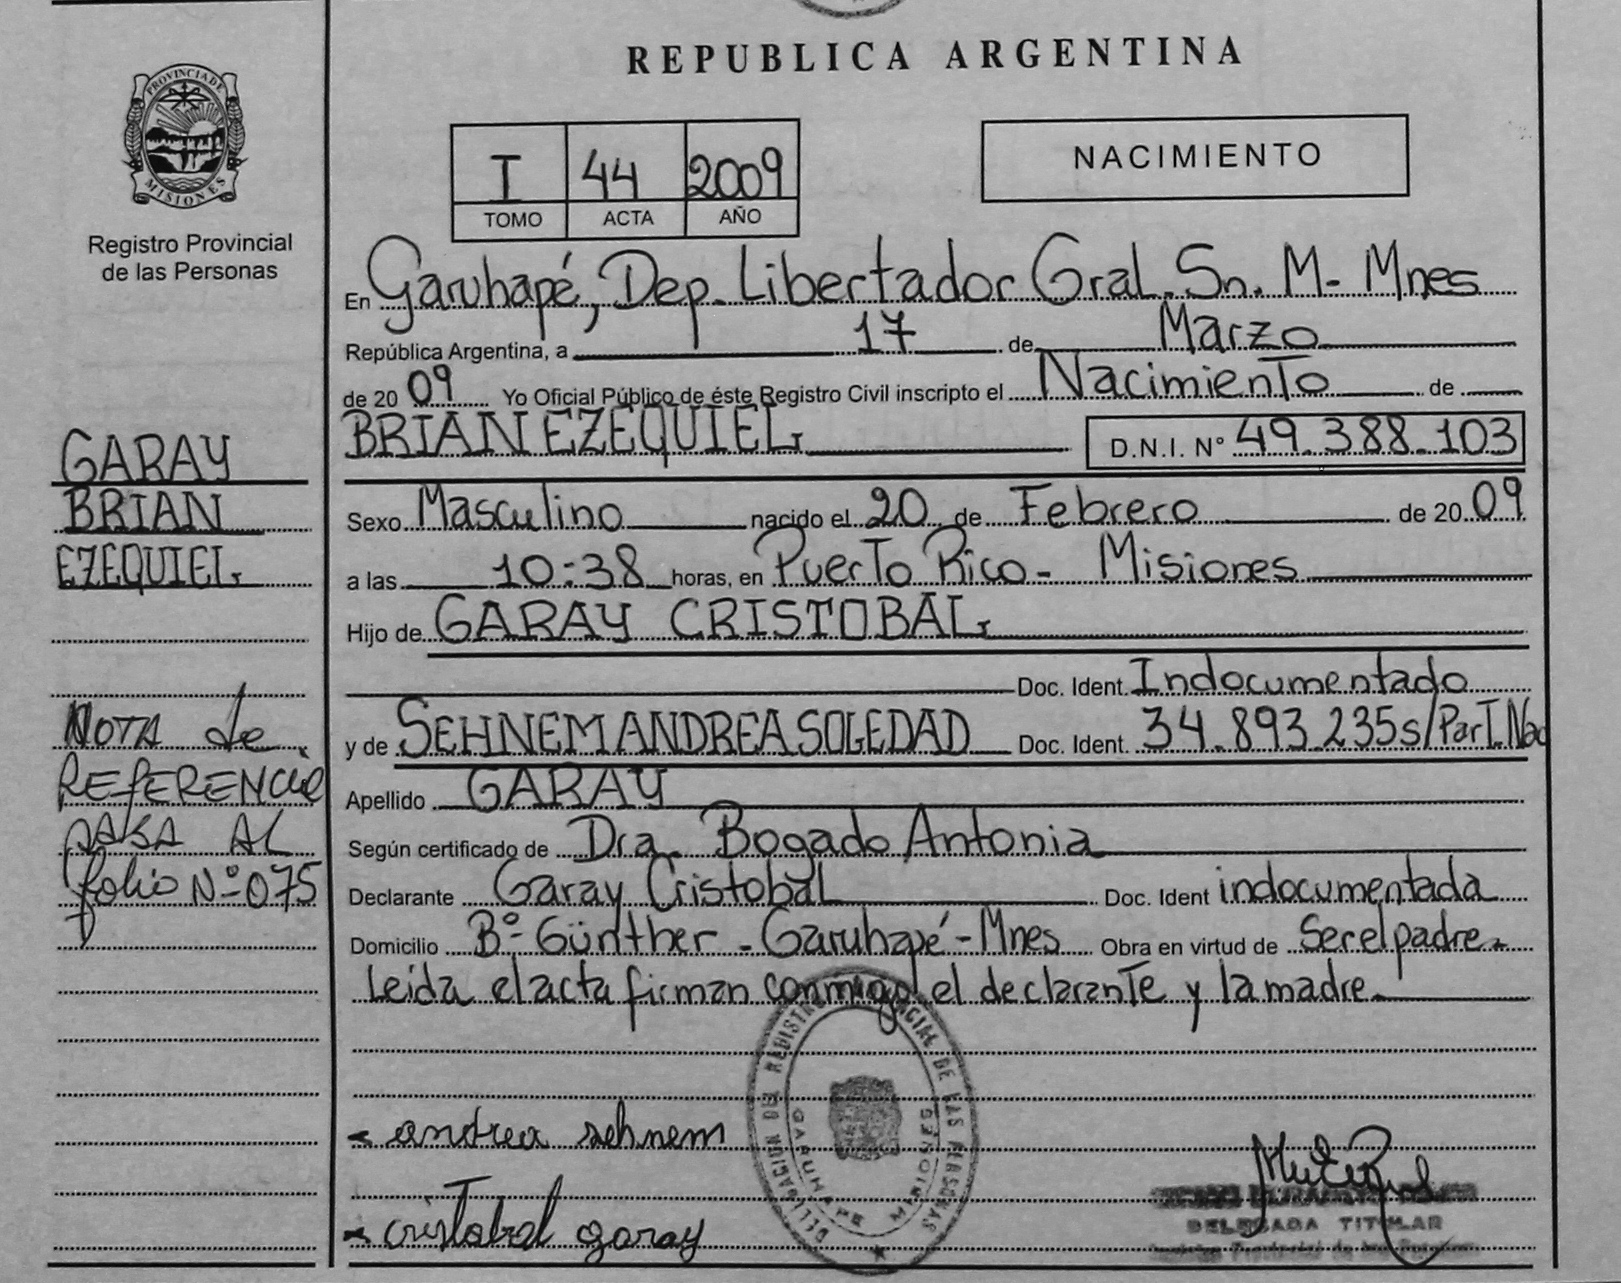 REPUBLICA ARGENTINA
PROVINCIA DE
MISIONES
Registro Provincial
de las Personas
I 44 2009
TOMO ACTA AÑO
NACIMIENTO
En Garuhapé, Dep. Libertador Gral. Sn. M- Mnes
República Argentina, a 17 de Marzo
de 20 09 Yo Oficial Público de éste Registro Civil inscripto el Nacimiento de
BRIAN EZEQUIEL D.N.I. Nº 49.388.103
GARAY
BRIAN
EZEQUIEL
Sexo Masculino nacido el 20 de Febrero de 20 09
a las 10:38 horas, en Puerto Rico - Misiones
Hijo de GARAY CRISTOBAL
Doc. Ident. Indocumentado
y de SEHNEM ANDREA SOLEDAD Doc. Ident. 34.893.235 s/Part.Nac
Apellido GARAY
Según certificado de Dra. Bogado Antonia
Declarante Garay Cristobal Doc. Ident indocumentada
Domicilio Bº Günther - Garuhapé - Mnes Obra en virtud de Ser el padre
Leida el acta firman conmigo el declarante y la madre
NOTA de
REFERENCIA
PASA AL
folio Nº 075
andrea sehnem
cristobal garay
DELEGACION DEL REGISTRO PROVINCIAL DE LAS PERSONAS
GARUHAPE MISIONES
DELEGADA TITULAR